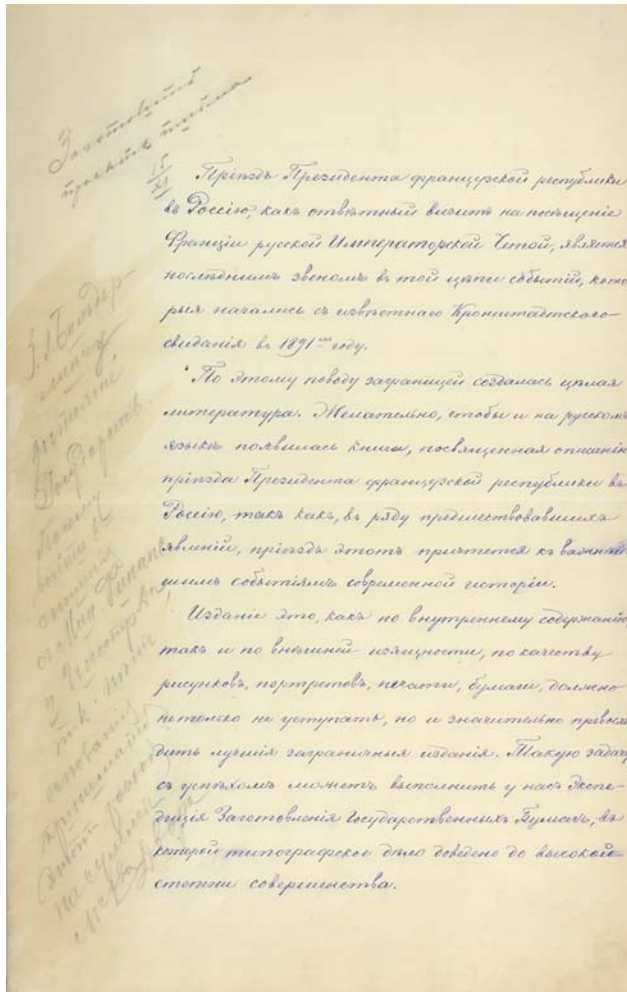 Заготовить
проектъ письма
15
XI
Пріѣздъ Президента французской республики
въ Россію, какъ отвѣтный визитъ на посѣщеніе
Франціи русской Императорской Четой, является
послѣднимъ звеномъ въ той цѣпи событій, кото
рыя начались съ извѣстнаго Кронштадтскаго
свиданія въ 1891мъ году.
По этому поводу заграницей создалась цѣлая
литература. Желательно, чтобы и на русскомъ
языкѣ появилась книга, посвященная описанію
пріѣзда Президента французской республики въ
Россію, такъ какъ, въ ряду предшествовавшихъ
явленій, пріѣздъ этотъ причтется къ важнѣй
шимъ событіямъ современной исторіи.
Изданіе это, какъ по внутреннему содержанію
такъ и по внѣшней изящности, по качеству
рисунковъ, портретовъ, печати, бумаги, должно
нетолько не уступать, но и значительно превосхо
дить лучшія заграничныя изданія. Такую задачу
съ успѣхомъ можетъ выполнить у насъ Экспе-
диція Заготовленія Государственныхъ Бумагъ, въ
которой типографское дѣло доведено до высокой
степени совершенства.
Государемъ.
Поэтому
войти въ
отъ Мин Финанс
на